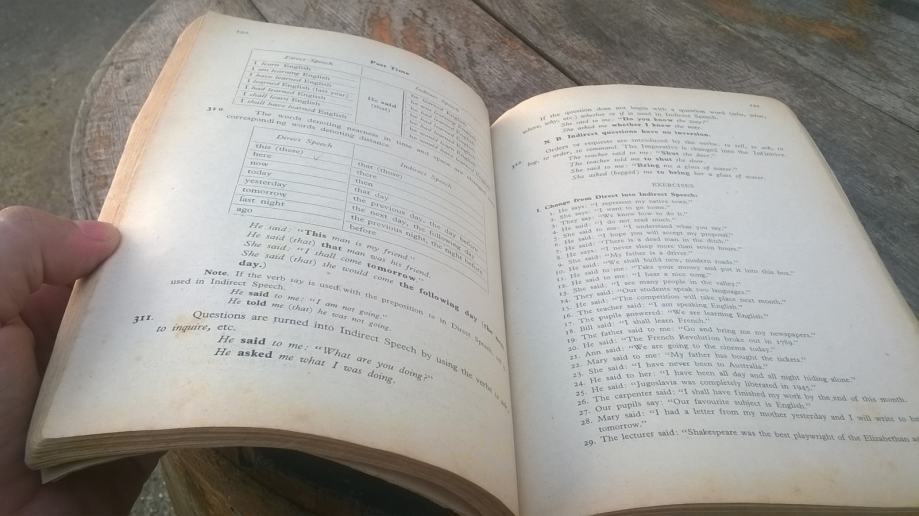 Direct Speech
Past Time
I learn English
I am learning English
I have learned English
I learned English (last year)
I had learned English
I shall learn English
I shall have learned English
He said
(that)
310.
The words denoting nearness of time and space are changed
corresponding words denoting distance.
Direct Speech
Indirect Speech
this (these)
that (those)
here
there
now
then
today
that day
yesterday
the previous day, the day before
tomorrow
the next day, the following day
last night
the previous night, the night before
ago
before
He said: "This man is my friend."
He said (that) that man was his friend.
She said: "I shall come tomorrow."
She said (that) she would come the following day (the
day.)
Note. If the verb say is used with the preposition to in Direct Speech,
used in Indirect Speech.
He said to me: "I am not going."
He told me (that) he was not going.
311.
Questions are turned into Indirect Speech by using the verbs to ask,
to inquire, etc.
He said to me: "What are you doing?"
He asked me what I was doing.
If the question does not begin with a question word (who, what,
where, why, etc.) whether or if is used in Indirect Speech.
She said to me: "Do you know the way?"
She asked me whether I knew the way.
N. B. Indirect questions have no inversion.
Orders or requests are introduced by the verbs: to tell, to ask, to
beg, to order, to command. The Imperative is changed into the Infinitive.
The teacher said to me: "Shut the door."
The teacher told me to shut the door.
She said to me: "Bring me a glass of water."
She asked (begged) me to bring her a glass of water.
EXERCISES
I. Change from Direct into Indirect Speech:
1. He says: "I represent my native town."
2. She says: "I want to go home."
3. They say: "We know how to do it."
4. He said: "I do not read much."
5. She said to me: "I understand what you say."
6. He said: "I hope you will accept my proposal."
7. He said: "There is a dead man in the ditch."
8. He says: "I never sleep more than seven hours."
9. She said: "My father is a driver."
10. He said: "We shall build new, modern roads."
11. He said to me: "Take your money and put it into this box."
12. He said to me: "I hear a nice song."
13. She said: "I see many people in the valley."
14. They said: "Our students speak two languages."
15. He said: "The competition will take place next month."
16. The teacher said: "I am speaking English."
17. The pupils answered: "We are learning English."
18. Bill said: "I shall learn French."
19. The father said to me: "Go and bring me my newspapers."
20. He said: "The French Revolution broke out in 1789."
21. Ann said: "We are going to the cinema today."
22. Mary said to me: "My father has bought the tickets."
23. She said: "I have never been to Australia."
24. He said to her: "I have been all day and all night hiding alone."
25. He said: "Jugoslavia was completely liberated in 1945."
26. The carpenter said: "I shall have finished my work by the end of this month.
27. Our pupils say: "Our favourite subject is English."
28. Mary said: "I had a letter from my mother yesterday and I will write to he
tomorrow."
29. The lecturer said: "Shakespeare was the best playwright of the Elizabethan